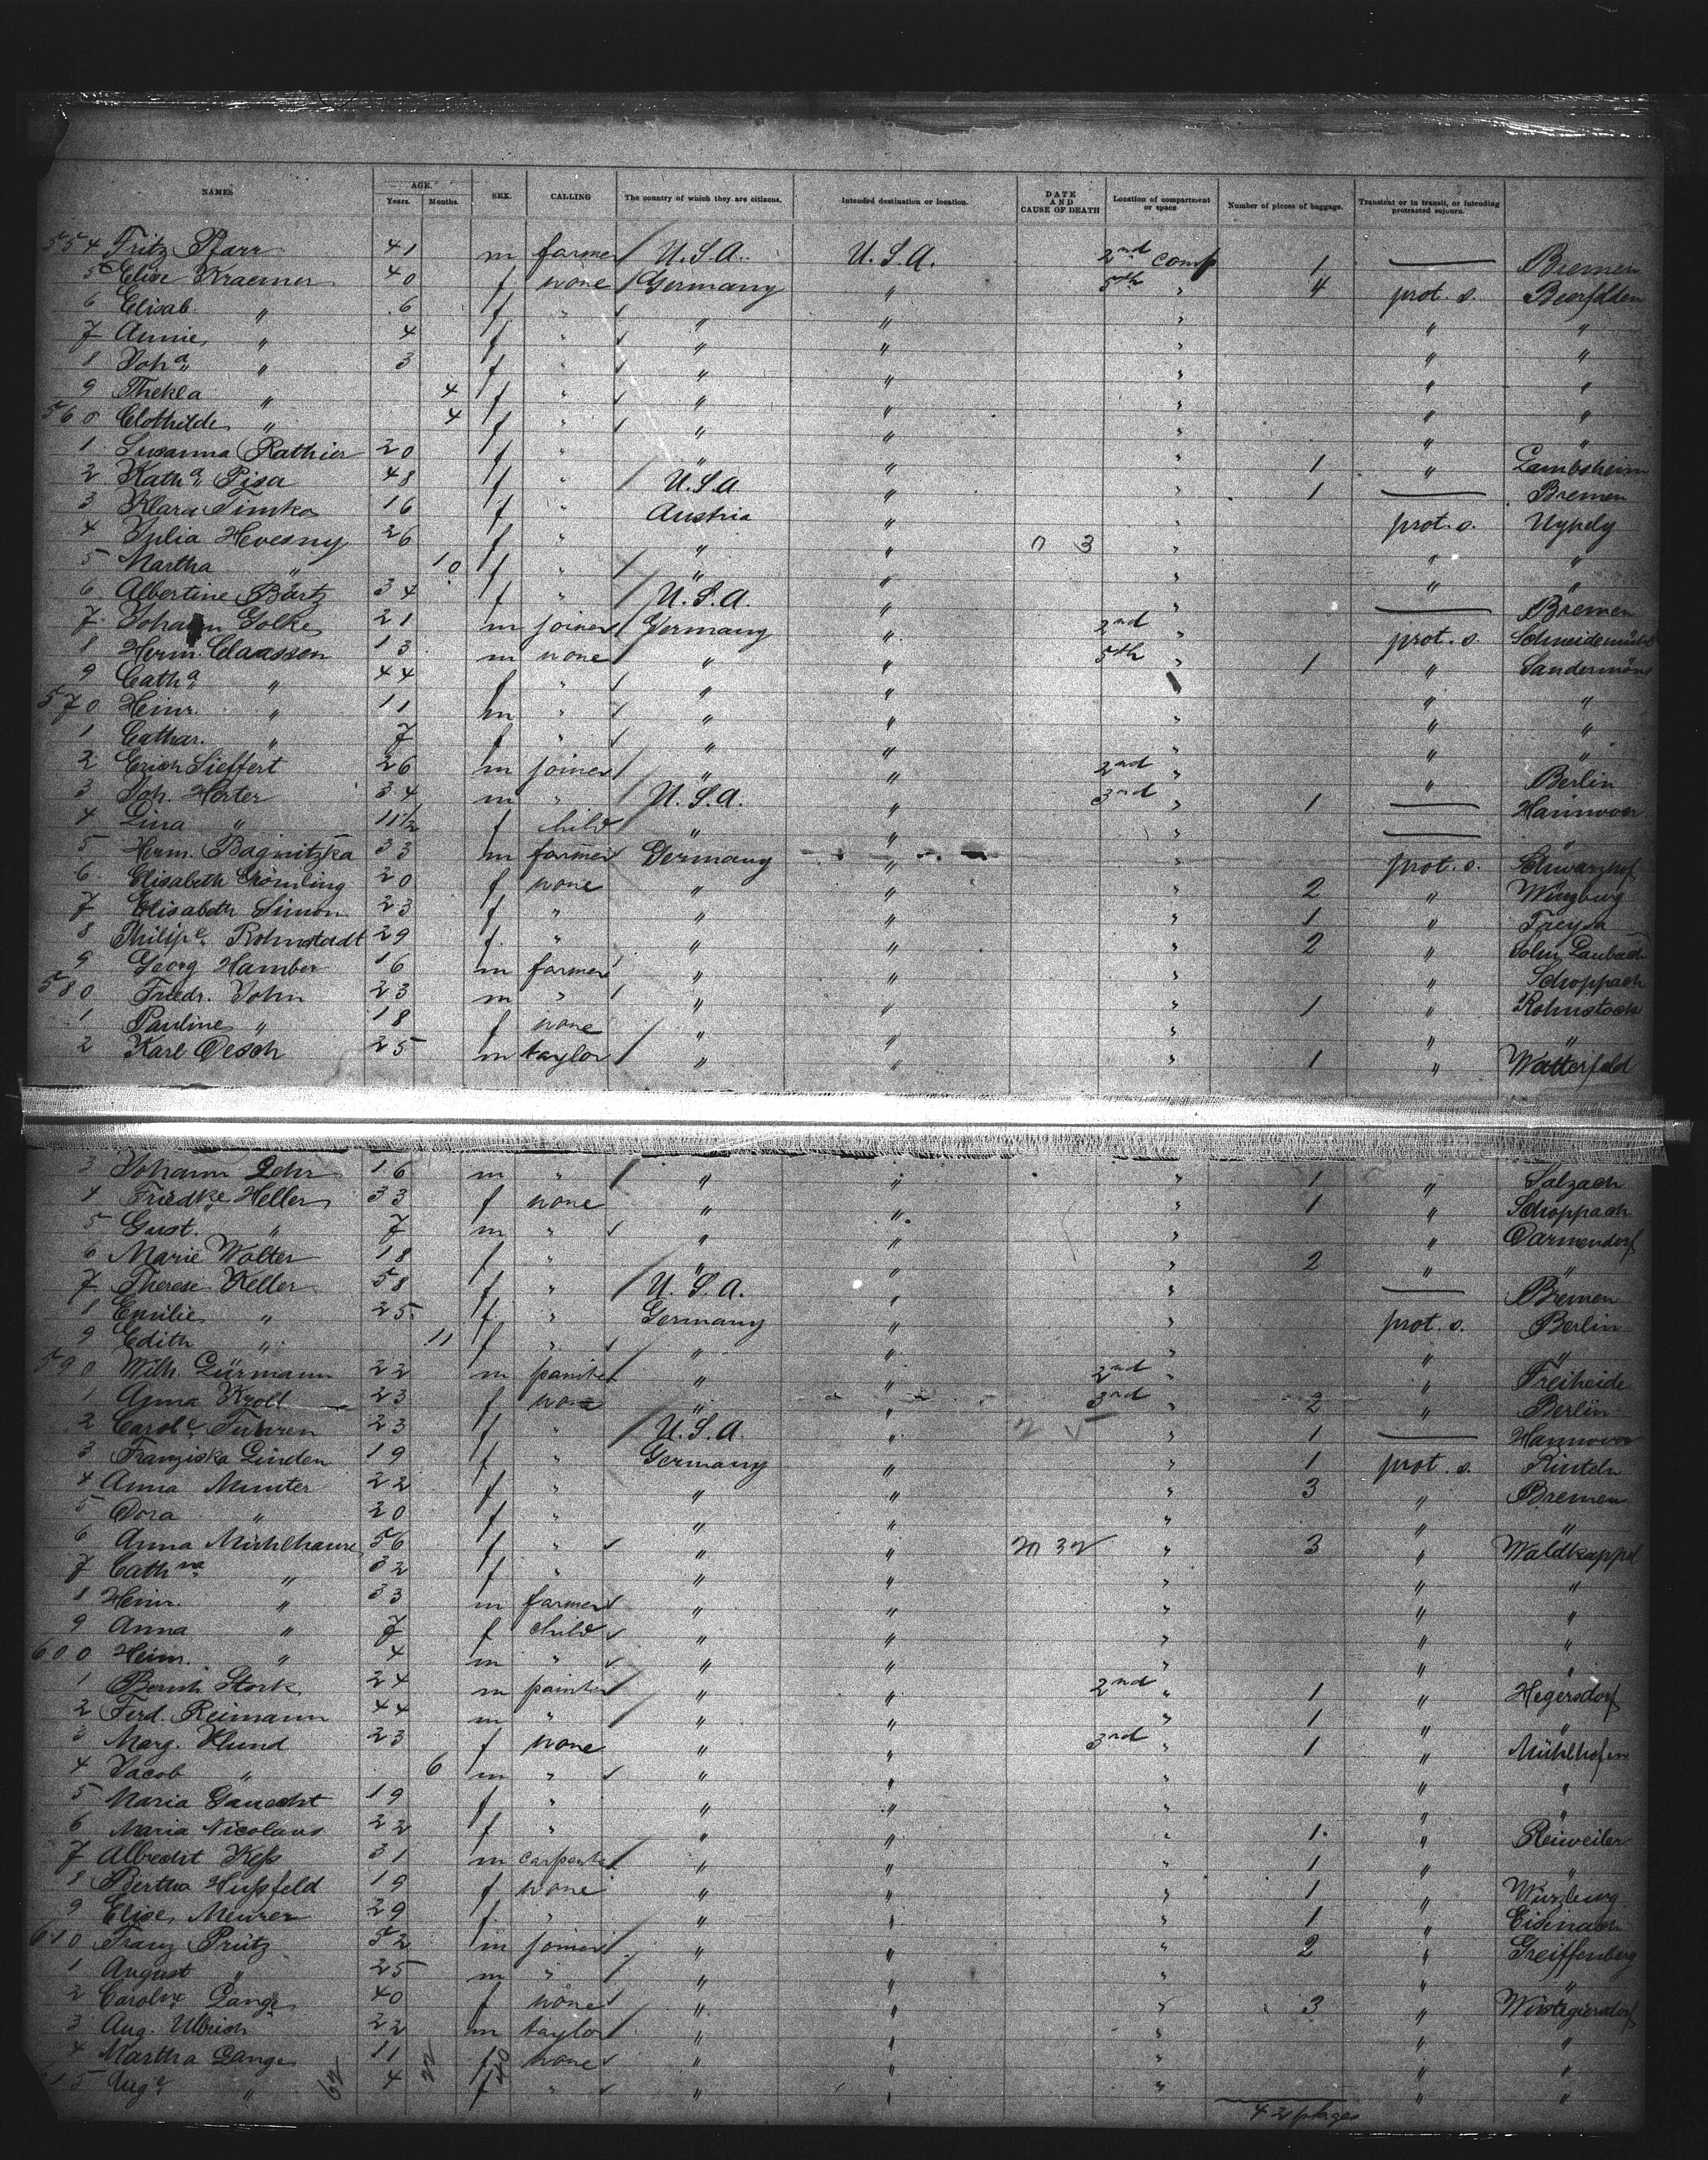 NAMES AGE. Years. Months. SEX. CALLING The country of which they are citizens. Intended destination or location. DATE AND CAUSE OF DEATH Location of compartment or space Number of pieces of baggage. Transient or in transit, or intending protracted sojourn.
554 Fritz Pfarr 41 m farmer U.S.A. U.S.A. 2nd comp 1 — Bremen
5 Elise Kraemer 40 f none Germany " 5th " 4 prot. s. Beerfelden
6 Elisab. " 6 f " " " " " "
7 Annie " 4 f " " " " " "
8 Joha " 3 f " " " " " "
9 Thekla " 4 f " " " " " "
560 Clothilde " 4 f " " " " " "
1 Susanna Rathier 20 f " " " " 1 " Lambsheim
2 Katha Pisa 48 f " U.S.A. " " 1 — Bremen
3 Klara Timko 16 f " Austria " " prot. s. Ujhely
4 Julia Hevesny 26 f " " " 0 3 " " "
5 Martha " 10 f " " " " " "
6 Albertine Bartz 34 f " U.S.A. " " — Bremen
7 Johann Golke 21 m joiner Germany " 2nd " prot. s. Schneidemühl
8 Herm. Claassen 13 m none " " 5th " 1 "
9 Catha " 44 f " " " " " "
570 Heinr. " 11 m " " " " " "
1 Cathar. " 7 f " " " " " "
2 Erich Sieffert 26 m joiner " " 2nd " " Berlin
3 Joh. Herter 34 m " U.S.A. " 3rd " 1 — Hannover
4 Lina " 11½ f child " " " — "
5 Herm. Bagnitzka 33 m farmer Germany " " prot. s. Schwarzhof
6 Elisabeth Grömling 20 f none " " " 2 " Würzburg
7 Elisabeth Simon 23 f " " " " 1 " Treysa
8 Philipe Rohnstadt 29 f " " " " 2 " Solm Laubach
9 Georg Hamber 16 m farmer " " " " Schoppach
580 Friedr. John 23 m " " " " 1 " Rohnstock
1 Pauline " 18 f none " " " " "
2 Karl Oesch 25 m taylor " " " 1 " Watterfeld
3 Johann Lehr 16 m " " " " 1 " Salzach
4 Friedke Heller 33 f none " " " 1 " Schoppach
5 Gust. " 7 m " " " " " Darmendorf
6 Marie Wolter 18 f " " " " 2 " "
7 Therese Keller 58 f " U.S.A. " " — Bremen
8 Emilie " 25 f " Germany " " prot. s. Berlin
9 Edith " 11 f " " " " " "
590 Wilh. Lürmann 22 m painter " " 2nd " " Freiheide
1 Anna Kroll 23 f none " " 3rd " 2 " Berlin
2 Carole 23 f " U.S.A. " " 1 — Hannover
3 Franziska Linden 19 f " Germany " " 1 prot. s. Rinteln
4 Anna Munter 22 f " " " " 3 " Bremen
5 Dora " 20 f " " " " " "
6 Anna Mühlhause 56 f " " " " 3 " Waldkappel
7 Cathna " 32 f " " " " " "
8 Heinr. " 33 m farmer " " " " "
9 Anna " 7 f child " " " " "
600 Heinr. " 4 m " " " " " "
1 Bernh. Stork 24 m painter " " 2nd " 1 " Hegersdorf
2 Ferd. Reimann 44 m " " " " 1 " "
3 Marg. Klund 23 f none " " 3rd " 1 " Mühlhofen
4 Jacob " 6 m " " " " " "
5 Maria Gauecht 19 f " " " " " "
6 Maria Nicolaus 22 f " " " " 1 " Reiweiler
7 Albrecht Keß 31 m carpenter " " " 1 " "
8 Bertha Hupfeld 19 f none " " " 1 " Würzburg
9 Elise Meurer 29 f " " " " 1 " Eisenach
610 Franz Prütz 52 m joiner " " " 2 " Greiffenberg
1 August " 25 m " " " " " "
2 Carolne Lange 40 f none " " " 3 " Wüstegiersdorf
3 Aug. Ulbrich 22 m taylor " " " " "
4 Martha Lange 11 f none " " " " "
615 Auge " 4 f " " " " " "
62 22 40 42 pkges